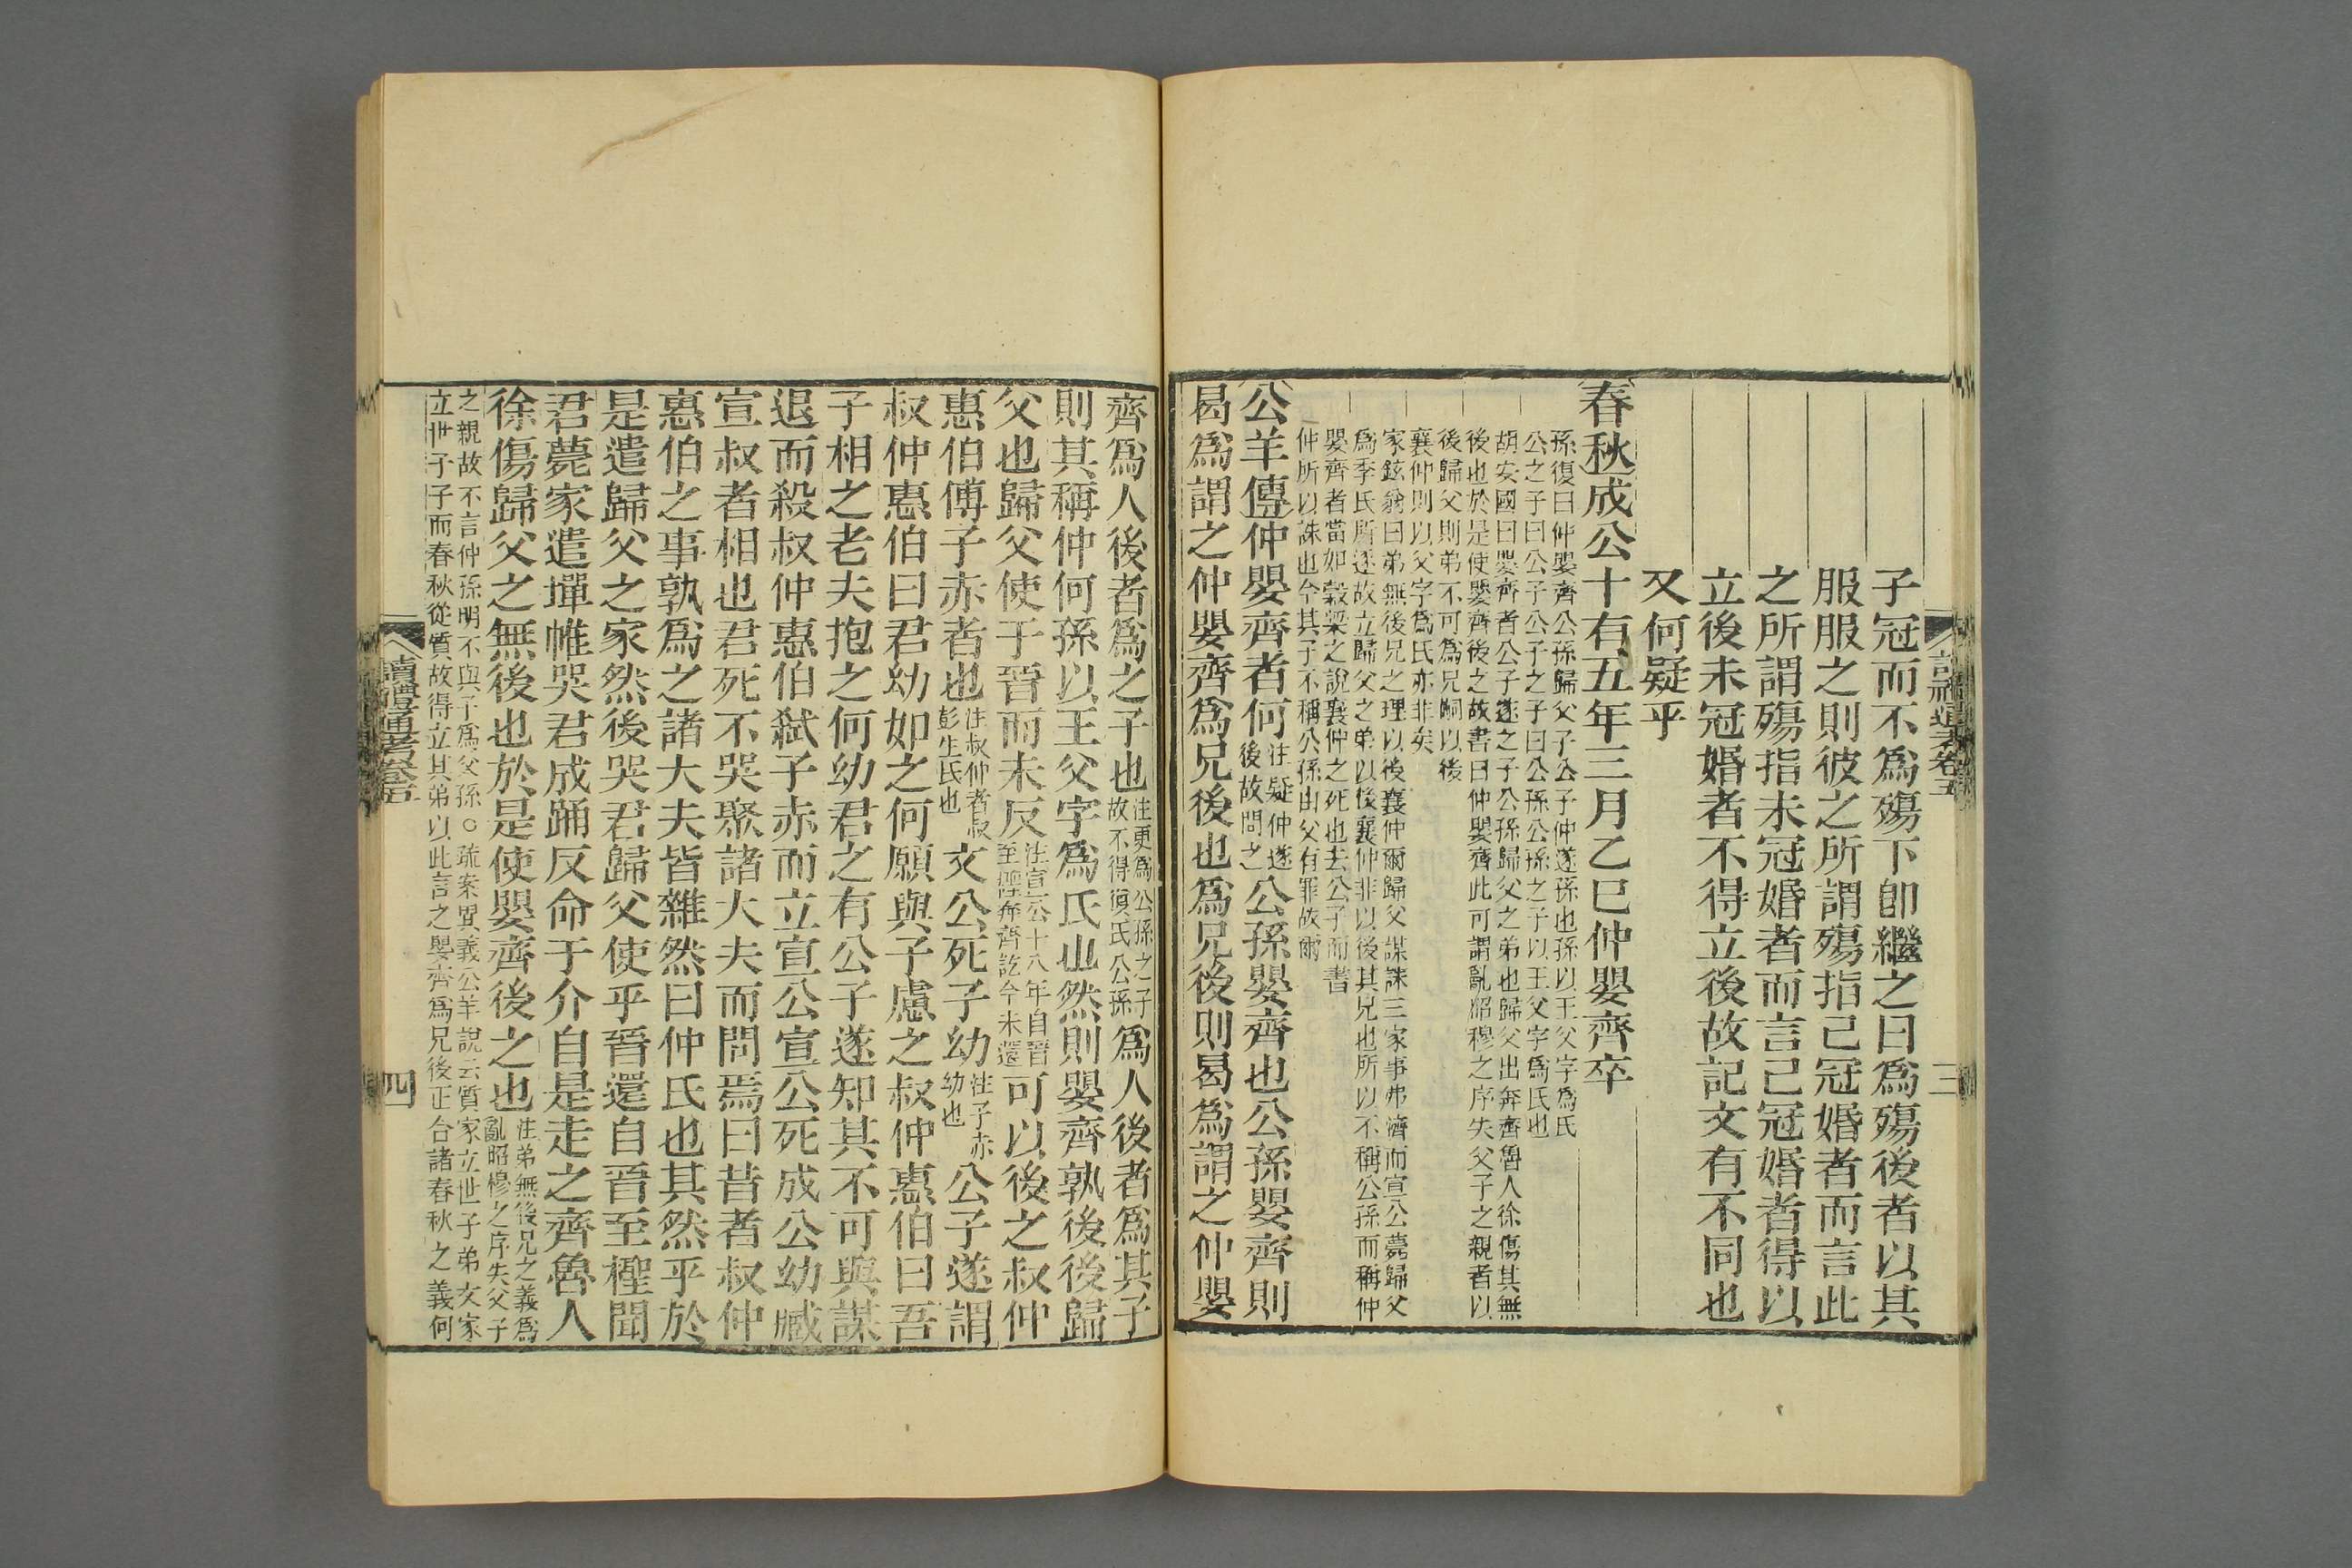 讀禮通考卷五
三
子冠而不爲殤下卽繼之曰爲殤後者以其
服服之則彼之所謂殤指己冠婚者而言此
之所謂殤指未冠婚者而言己冠婚者得以
立後未冠婚者不得立後故記文有不同也
又何疑乎
春秋成公十有五年三月乙巳仲嬰齊卒
孫復曰仲嬰齊公孫歸父子公子仲遂孫也孫以王父字爲氏
公之子曰公子公子之子曰公孫公孫之子以王父字爲氏也
胡安國曰嬰齊者公子遂之子公孫歸父之弟也歸父出奔齊魯人徐傷其無
後也於是使嬰齊後之故書曰仲嬰齊此可謂亂昭穆之序失父子之親者以
後歸父則弟不可爲兄嗣以後
襄仲則以父字爲氏亦非矣
家鉉翁曰弟無後兄之理以後襄仲爾歸父謀誅三家事弗濟而宣公薨歸父
爲季氏所逐故立歸父之弟以後襄仲非以後其兄也所以不稱公孫而稱仲
嬰齊者當如穀梁之說襄仲之死也去公子而書
仲所以誅也今其子不稱公孫由父有罪故爾
公羊傳仲嬰齊者何注疑仲遂後故問之公孫嬰齊也公孫嬰齊則
曷爲謂之仲嬰齊爲兄後也爲兄後則曷爲謂之仲嬰
齊爲人後者爲之子也注更爲公孫之子故不得復氏公孫爲人後者爲其子
則其稱仲何孫以王父字爲氏也然則嬰齊孰後後歸
父也歸父使于晉而未反注宣公十八年自晉至檉奔齊訖今未還可以後之叔仲
惠伯傅子赤者也注叔仲者叔彭生氏也文公死子幼注子赤幼也公子遂謂
叔仲惠伯曰君幼如之何願與子慮之叔仲惠伯曰吾
子相之老夫抱之何幼君之有公子遂知其不可與謀
退而殺叔仲惠伯弑子赤而立宣公宣公死成公幼臧
宣叔者相也君死不哭聚諸大夫而問焉曰昔者叔仲
惠伯之事孰爲之諸大夫皆雜然曰仲氏也其然乎於
是遣歸父之家然後哭君歸父使乎晉還自晉至檉聞
君薨家遣墠帷哭君成踊反命于介自是走之齊魯人
徐傷歸父之無後也於是使嬰齊後之也注弟無後兄之義爲亂昭穆之序失父子
之親故不言仲孫明不與子爲父孫○疏案異義公羊說云質家立世子弟文家
立世子子而春秋從質故得立其弟以此言之嬰齊爲兄後正合諸春秋之義何
讀禮通考卷五
四